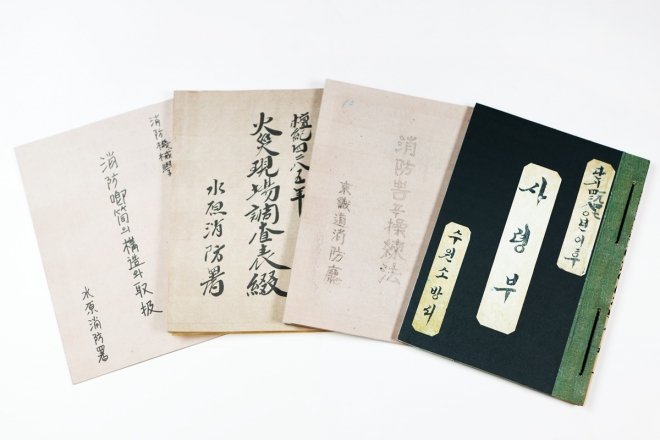 消防機械學
消防喞筒의構造와取扱
水原消防署
檀紀四二八五年
火災現場調査表綴
水原消防署
消防 操練法
京畿道消防廳
단기 년이후
사령부
수원소방서